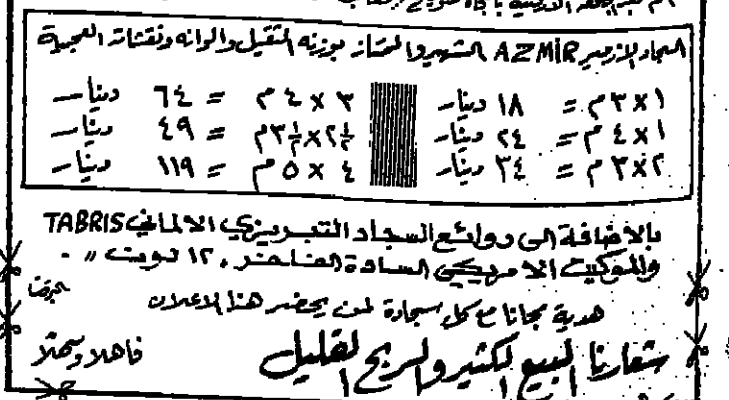 السجاد الازمير AZMIR الشهير والممتاز بوزنه الثقيل والوانه ونقشاته العجيبة
١×٣م = ١٨ دينار
٣×٤م = ٦٤ دينار
١×٤م = ٢٤ دينار
٢½×٣½م = ٤٩ دينار
٢×٣م = ٣٤ دينار
٤×٥م = ١١٩ دينار
بالاضافة الى روائع السجاد التبريزي الالماني TABRIS
والموكيت الامريكي السادة الفاخر ١٢ لوينت ״
هدية مجانا مع كل سجادة لمن يحضر هذا الاعلان
شعارنا البيع الكثير والربح القليل
فاهلا وسهلا